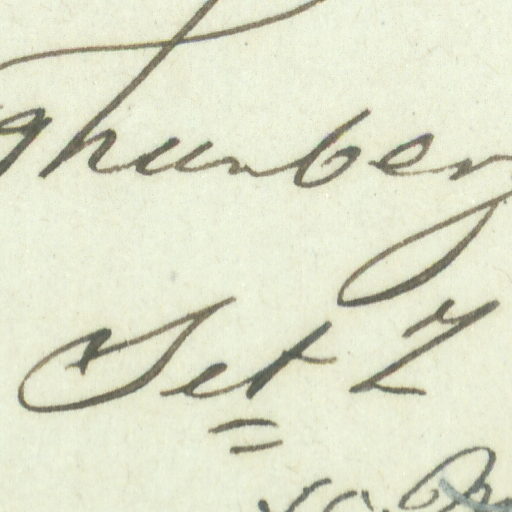 Thunberg
Set 2